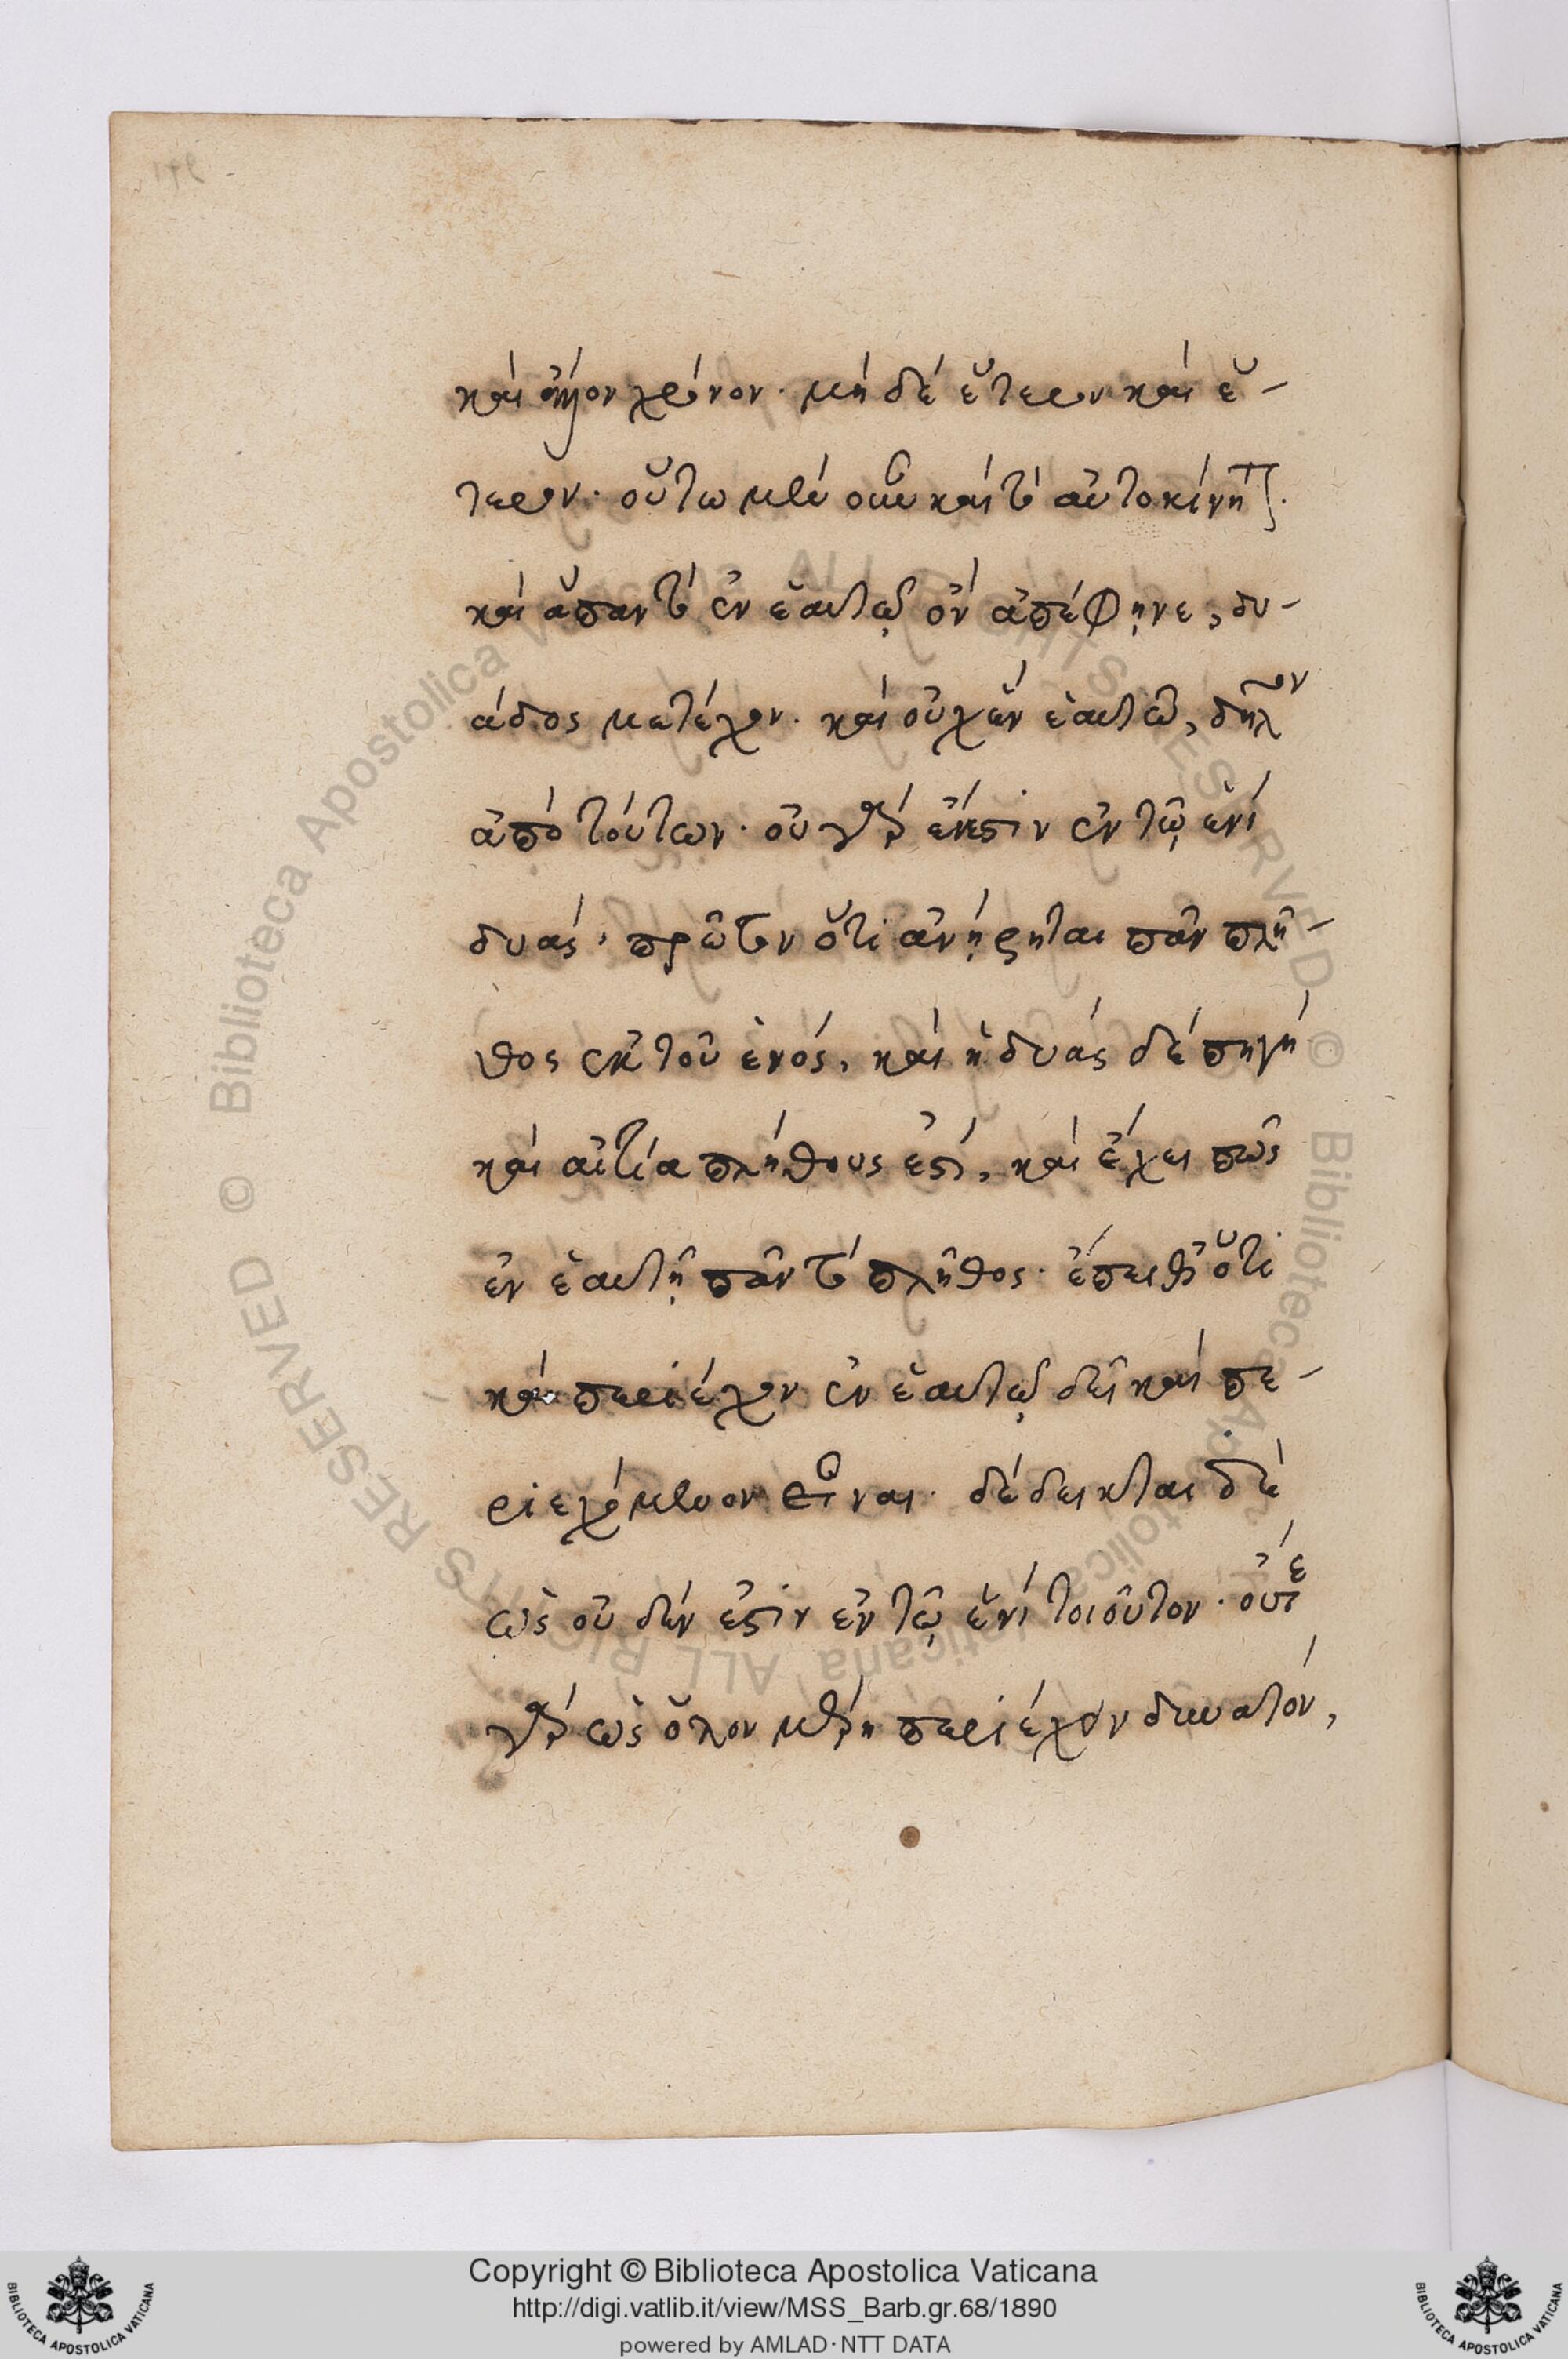 καὶ ἄλλον χρόνον· μὴ δὲ ἕτερον καὶ ἕ-
τερον· οὕτω μὲν οὖν καὶ τὸ αὐτοκίνητον.
καὶ ἅπαν τὸ ἐν ἑαυτῷ ὂν ἀπέφηνε, δυ-
άδος μετέχον. καὶ οὐχ ἓν ἑαυτῶ, δῆλον
ἀπὸ τούτων· οὐ γὰρ ἔνεστιν ἐν τῷ ἑνὶ
δυάς· πρῶτον ὅτι ἀνῄρηται πᾶν πλῆ-
θος ἐκ τοῦ ἑνός, καὶ ἡ δυὰς δὲ πηγὴ
καὶ αἰτία πλήθους ἐστί, καὶ ἔχει πως
ἐν ἑαυτῇ πᾶν τὸ πλῆθος· ἔπειθ' ὅτι
καὶ περιέχον ἐν ἑαυτῷ δεῖ καὶ πε-
ριεχόμενον εἶναι· δέδεικται δὲ
ὡς οὐδέν ἐστιν ἐν τῷ ἑνὶ τοιοῦτον· οὔτε
γὰρ ὡς ὅλον μέρη περιέχον δυνατόν,
Copyright © Biblioteca Apostolica Vaticana
http://digi.vatlib.it/view/MSS_Barb.gr.68/1890
powered by AMLAD·NTT DATA
BIBLIOTECA APOSTOLICA VATICANA
BIBLIOTECA APOSTOLICA VATICANA
© Biblioteca Apostolica Vaticana ALL RIGHTS RESERVED © Biblioteca Apostolica Vaticana ALL RIGHTS RESERVED